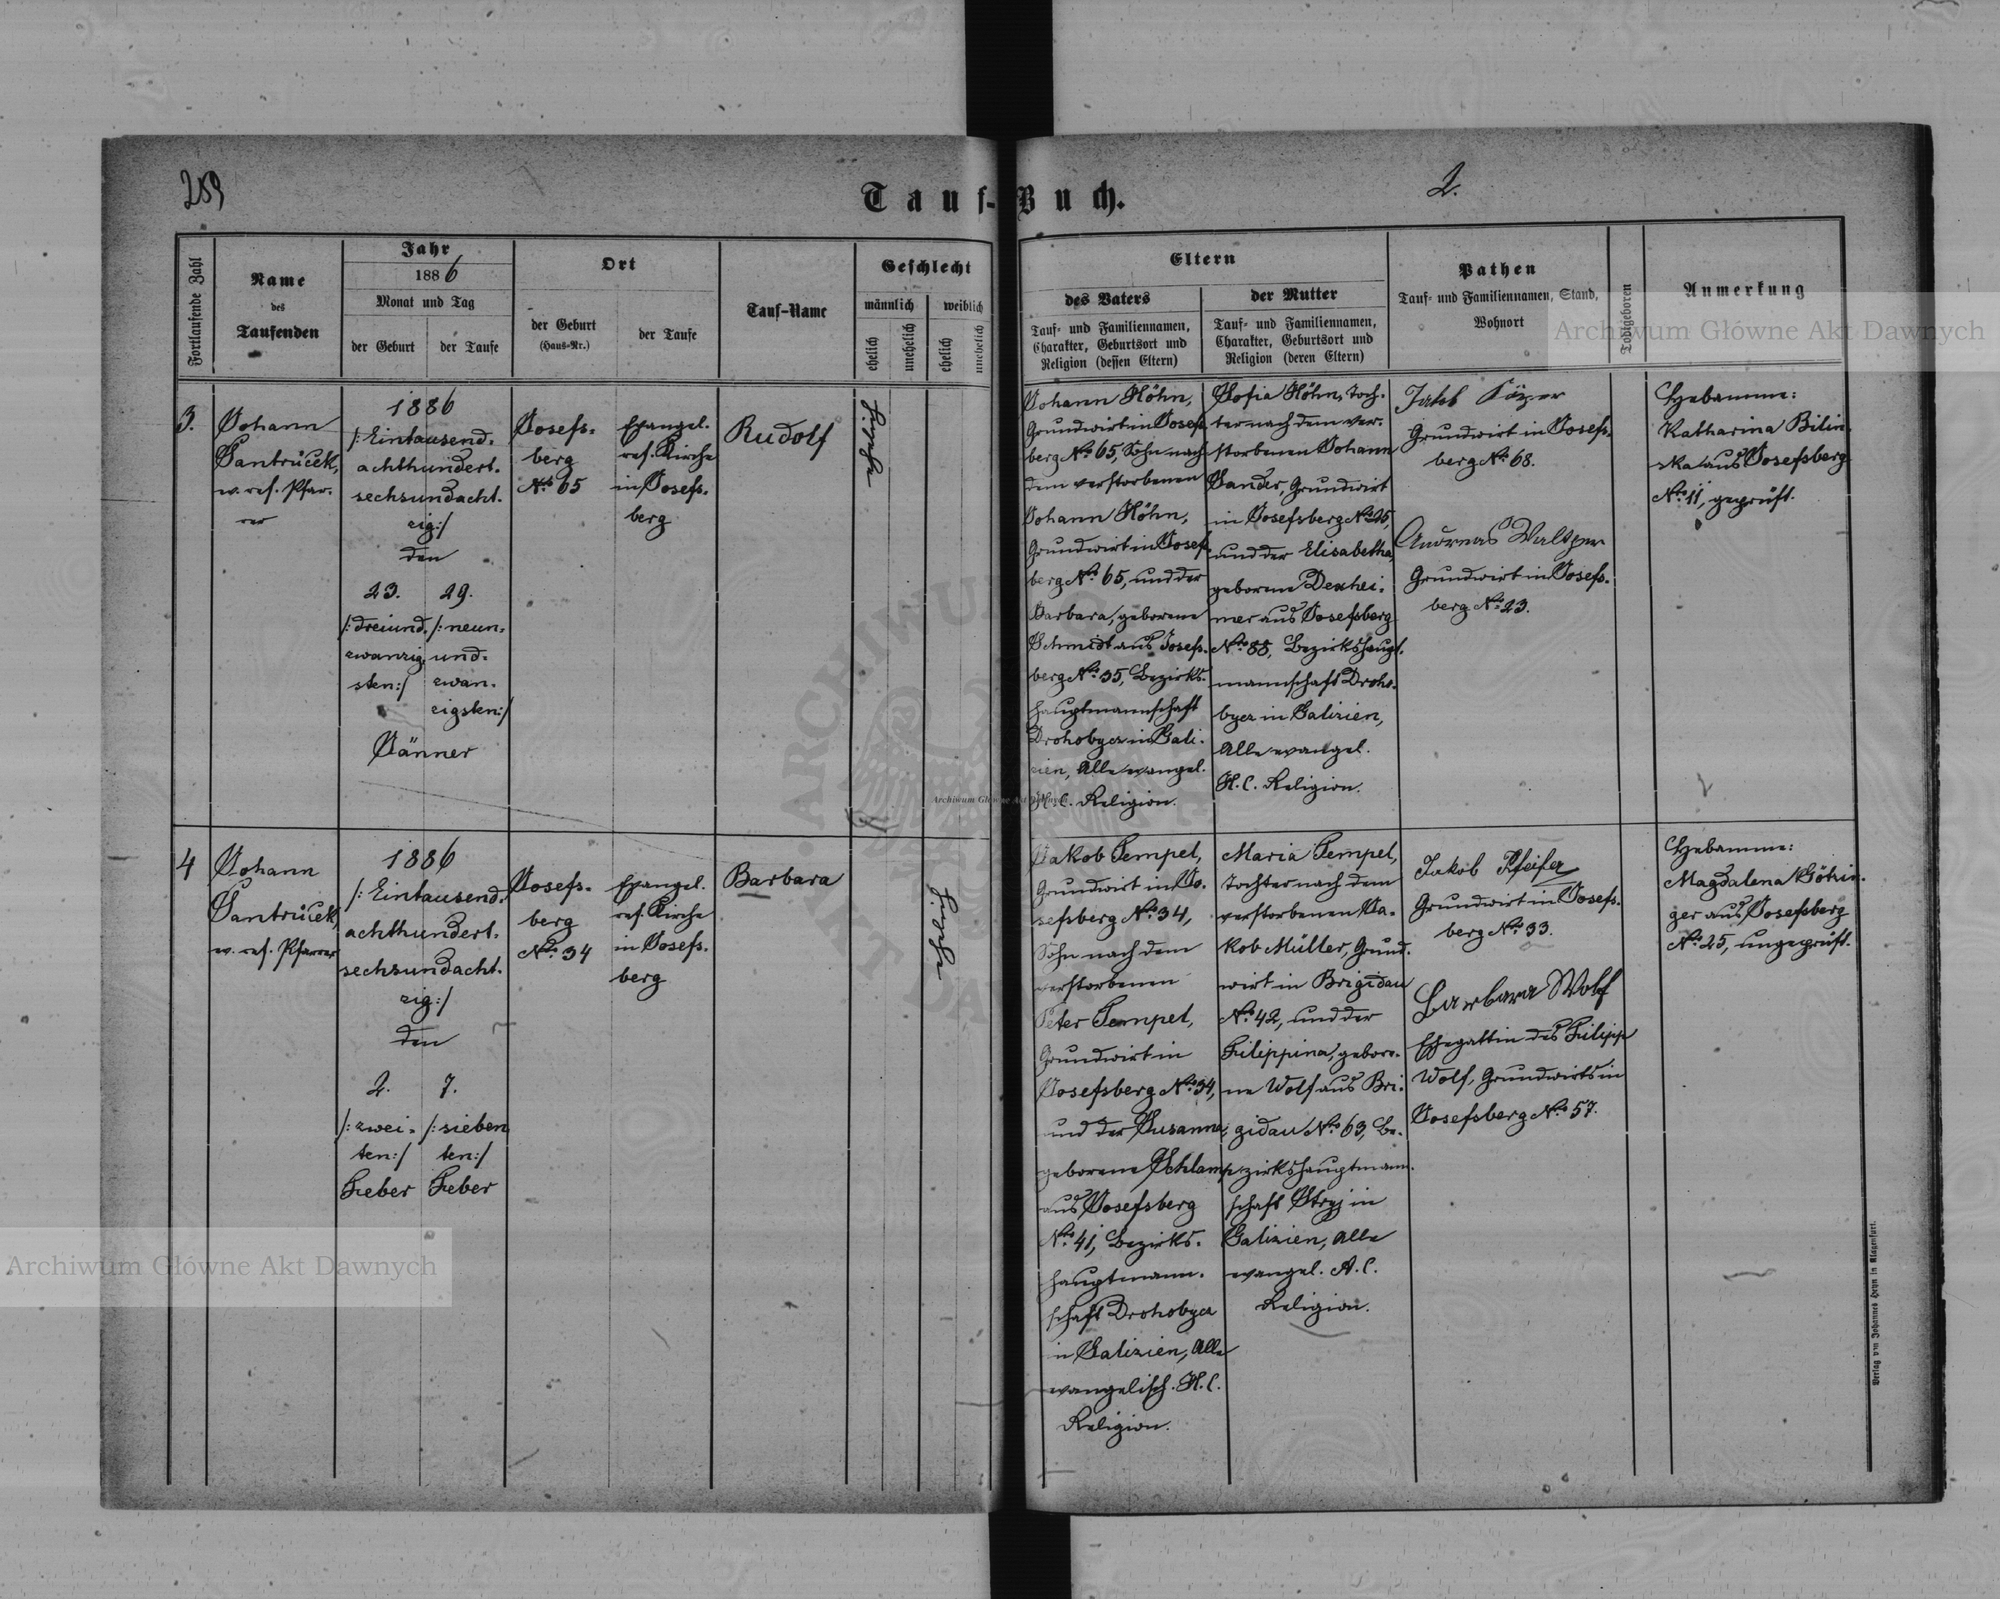 259
2.
Tauf-Buch.
Fortlaufende Zahl
Name
des
Taufenden
Jahr
1886
Monat und Tag
der Geburt
der Taufe
Ort
der Geburt
(Haus-Nr.)
der Taufe
Tauf-Name
Geschlecht
männlich
weiblich
ehelich
unehelich
ehelich
unehelich
Eltern
des Vaters
Tauf- und Familiennamen,
Charakter, Geburtsort und
Religion (dessen Eltern)
der Mutter
Tauf- und Familiennamen,
Charakter, Geburtsort und
Religion (deren Eltern)
Pathen
Tauf- und Familiennamen, Stand,
Wohnort
Todtgeboren
Anmerkung
3.
Johann
Jantrůcek,
ev. ref. Pfar-
rer
1886
/: Eintausend-
achthundert-
sechsundacht-
zig:/
den
23.
/: dreiund-
zwanzig-
sten:/
29.
/: neun-
und-
zwan-
zigsten:/
Jänner
Josefs-
berg
No. 65
Evangel.
ref. Kirche
in Josefs-
berg
Rudolf
Johann Höhn,
Grundwirt in Josefs-
berg No. 65, Sohn nach
dem verstorbenen
Johann Höhn,
Grundwirt in Josefs-
berg No. 65, und der
Barbara, geborene
Schmidt aus Josefs-
berg No. 35, Bezirks-
hauptmannschaft
Drohobycz in Gali-
zien, Alle evangel.
H. C. Religion.
Sofia Höhn, Toch-
ter nach dem ver-
storbenen Johann
Sander, Grundwirt
in Josefsberg No. 25,
und der Elisabetha,
geborene Dexhei-
mer aus Josefsberg
No. 88, Bezirkshaupt-
mannschaft Droho-
bycz in Galizien,
Alle evangel.
H. C. Religion.
Jakob
Grundwirt in Josefs-
berg No. 68.
Andreas Waltzer
Grundwirt in Josefs-
berg No. 23.
Hebamme:
Katharina Bilin-
ska aus Josefsberg
No. 11, geprüft.
4
Johann
Jantrůcek,
ev. ref. Pfarrer
1886
/: Eintausend-
achthundert-
sechsundacht-
zig:/
den
2.
/: zwei-
ten:/
Feber
7.
/: sieben
ten:/
Feber
Josefs-
berg
No. 34
Evangel.
ref. Kirche
in Josefs-
berg
Barbara
Jakob Tempel,
Grundwirt in Jo-
sefsberg No. 34,
Sohn nach dem
verstorbenen
Peter Tempel,
Grundwirt in
Josefsberg No. 34,
und der Susanna,
geborene Schlamp
aus Josefsberg
No. 41, Bezirks-
hauptmann-
schaft Drohobycz
in Galizien, Alle
evangelisch. H. C.
Religion.
Maria Tempel,
Tochter nach dem
verstorbenen Ja-
kob Müller, Grund-
wirt in Brigidau
No. 42, und der
Filippina, gebore-
ne Wolf aus Bri-
gidau No. 63, Be-
zirkshauptmann-
schaft Stryj in
Galizien, Alle
evangel. A. C.
Religion.
Jakob Pfeifer
Grundwirt in Josefs-
berg No. 33.
Barbara Wolf
Ehegattin des Filipp
Wolf, Grundwirts in
Josefsberg No. 57.
Hebamme:
Magdalena Götzin-
ger aus Josefsberg
No. 25, ungeprüft.
Verlag von Johannes Heyn in Klagenfurt.
Archiwum Główne Akt Dawnych
Archiwum Główne Akt Dawnych
Archiwum Główne Akt Dawnych